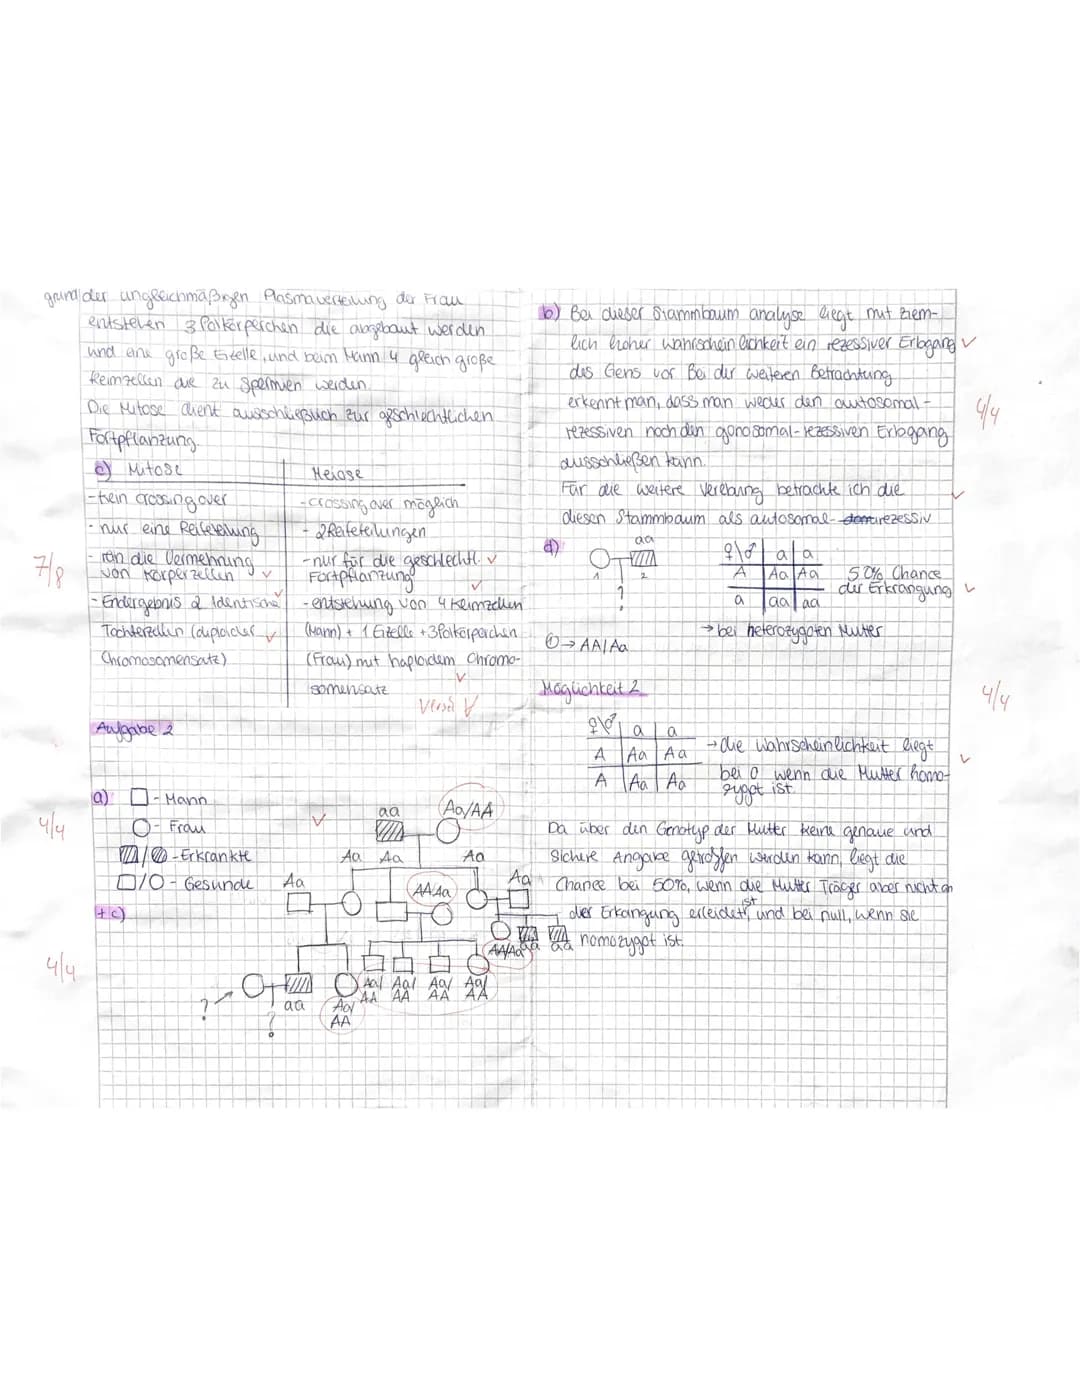 grund der ungleichmäßigen Plasmaverteilung der Frau
entstehen 3 Polkörperchen die abgebaut werden
und eine große Eizelle, und beim Mann 4 gleich große
Keimzellen die zu Spermien werden.
Die Mitose dient ausschließlich zur geschlechtlichen
Fortpflanzung.
c) Mitose
Meiose
- kein crossing over
- crossing over möglich
- nur eine Reifeteilung
- 2 Reifeteilungen
7/8
- rein die Vermehrung
von Körperzellen
- nur für die geschlechtl.
Fortpflanzung
- Endergebnis 2 Identische
Tochterzellen (diploider
Chromosomensatz)
- entstehung von 4 Keimzellen
(Mann) + 1 Eizelle + 3 Polkörperchen
(Frau) mit haploidem Chromo-
somensatz
Aufgabe 2
a) □ - Mann
4/4
○ - Frau
/ - Erkrankte
□/○ - Gesunde
+ c)
4/4
aa
Aa/AA
Aa Aa
Aa
Aa
AA/Aa
Aa
AA/Aa
aa aa
Aa/ Aa/ Aa/ Aa/
AA AA AA AA
? aa
Aa/
AA
?
b) Bei dieser Stammbaum analyse liegt mit ziem-
lich hoher wahrscheinlichkeit ein rezessiver Erbgang
des Gens vor. Bei der weiteren Betrachtung
erkennt man, dass man weder den autosomal-
rezessiven noch den gonosomal-rezessiven Erbgang
ausschließen kann.
4/4
Für die weitere Vererbung betrachte ich die
diesen Stammbaum als autosomal-rezessiv
d)
aa
1 2
?
① → AA/Aa
♀\♂ a a
A Aa Aa
a aa aa
50% Chance
der Erkrangung
→ bei heterozygoten Mutter
4/4
Möglichkeit 2
♀\♂ a a
A Aa Aa
A Aa Aa
→ die Wahrscheinlichkeit liegt
bei 0 wenn die Mutter homo-
zygot ist.
Da über den Genotyp der Mutter keine genaue und
sichere Angabe getroffen werden kann, liegt die
Chance bei 50%, wenn die Mutter Träger aber nicht an
der Erkangung erleidet ist, und bei null, wenn sie
homozygot ist.